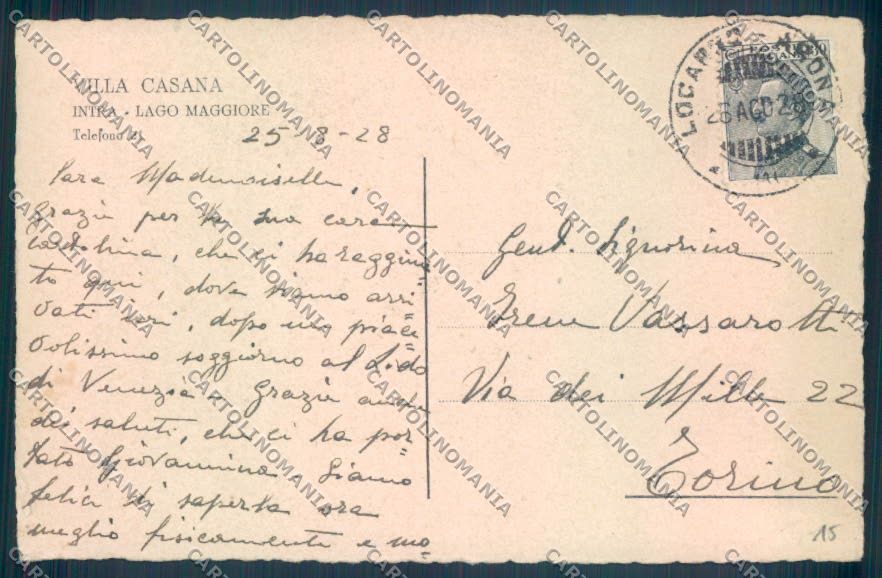 VILLA CASANA
INTRA - LAGO MAGGIORE
Telefono
25-8-28
Cara Mademoiselle,
Grazie per la sua cara
cartolina, che ci ha raggiun
to qui, dove siamo arri=
vati ieri, dopo un piace=
volissimo soggiorno al Lido
di Venezia. Grazie anche
dei saluti, che ci ha por=
tato Giovannina. Siamo
felici di saperla ora
meglio fisicamente e mo=
LOCARNO - ARONA
26 AGO 28
Gent. Signorina
Irene Vassarotti
Via dei Mille 22
Torino
15
CARTOLINOMANIA